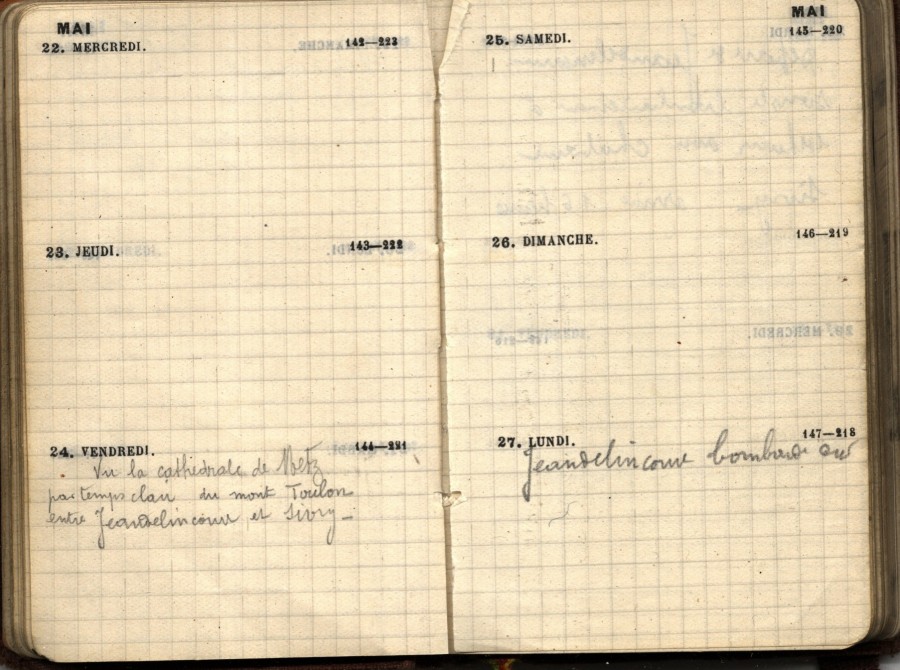 MAI
22. MERCREDI. 142—223
23. JEUDI. 143—222
24. VENDREDI. 144—221
Vu la cathédrale de Metz
par temps clair du mont Toulon
entre Jeandelincour et Sivry—
MAI
25. SAMEDI. 145—220
26. DIMANCHE. 146—219
27. LUNDI. 147—218
Jeandelincour bombardé